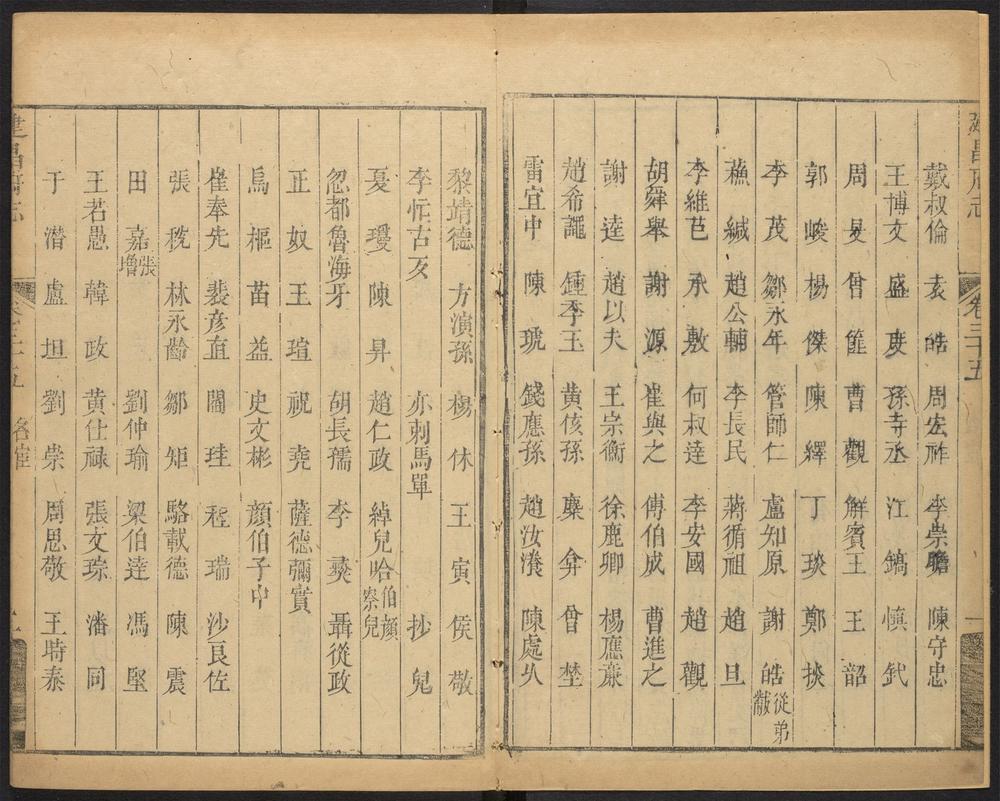 卷三十五
戴叔倫 袁皓 周宏祚 李崇瞻 陳守忠
王博文 盛度 孫寺丞 江鎬 愼釴
周旻 曾 曹觀 解賓王 王韶
郭峻 楊傑 陳繹 丁琰 鄭掞
李茂 鄒永年 管師仁 盧知原 謝皓 從弟黻
蘓緘 趙公輔 李長民 蔣循祖 趙旦
李維芑 永敷 何叔達 李安國 趙觀
胡舜舉 謝源 崔與之 傅伯成 曹進之
謝逵 趙以夫 王宗衡 徐鹿卿 楊應
趙希 鍾季玉 黃孩孫 麋弇 曾埜
雷宜中 陳琥 錢應孫 趙汝 陳處
黎靖德 方演孫 楊休 王寅 侯敬
李恠古歹 亦刺馬單 抄兒
憂璦 陳昇 趙仁政 綽兒哈 伯顏察兒
忽都魯海牙 胡長孺 李爕 聶從政
正奴 王瑄 祝堯 薩德彌實
烏樞 苗益 史文彬 顏伯子中
崔奉先 裴彥直 閻珪 程瑞 沙良佐
張毿 林永齡 鄒矩 駱載德 陳震
田嘉 張增 劉仲瑜 梁伯達 馮堅
王若愚 韓政 黃仕祿 張文琮 潘同
于潛 盧坦 劉崇 周思敬 王時泰
建昌府志
名宦